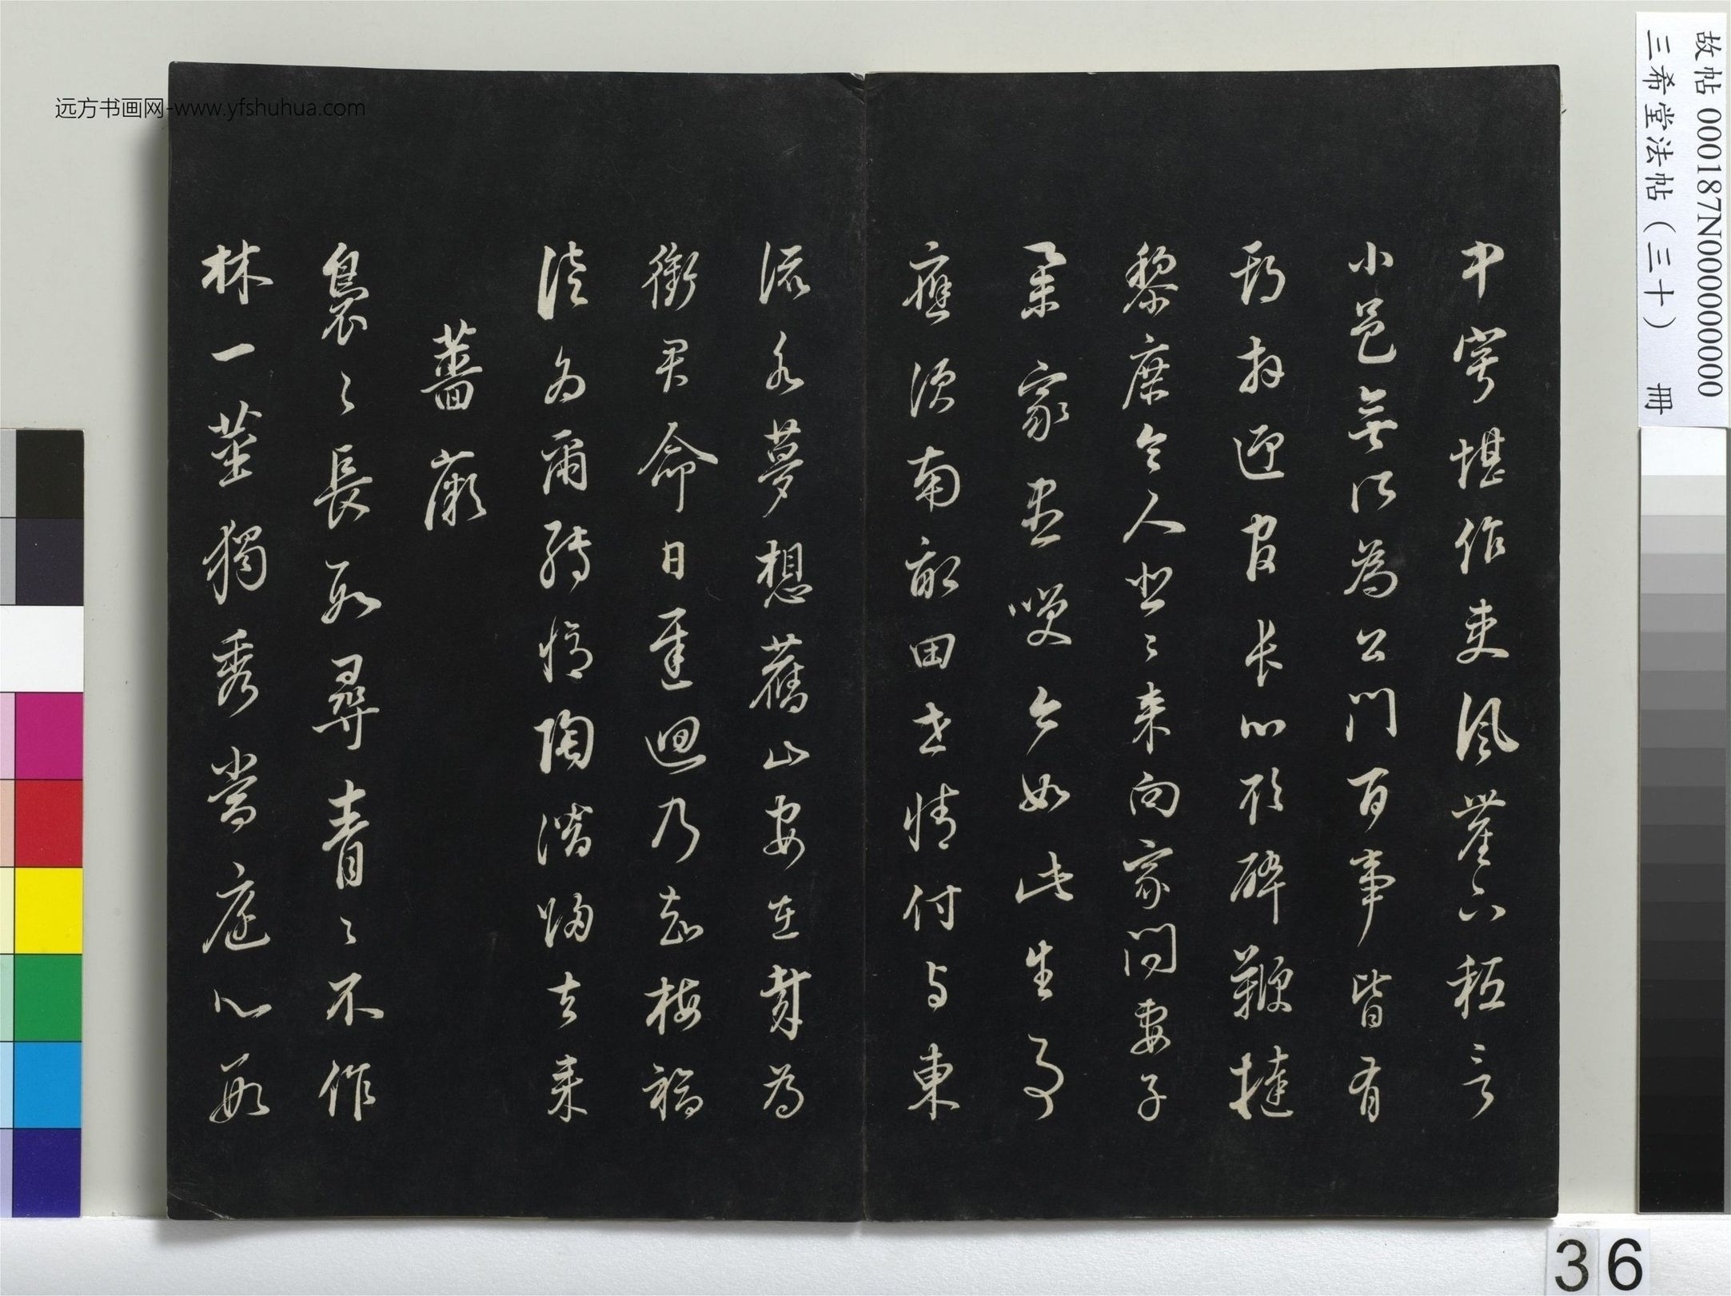 故帖 000187N000000000
三希堂法帖（三十） 冊
中寧堪作吏風塵下秖言
小邑無所為公門百事皆有
期拜迎官長心欲碎鞭撻
黎庶令人悲〻來向家問妻子
舉家盡笑今如此生事
應須南畝田世情付与東
流水夢想舊山安在哉為
銜君命日遲迴乃知梅福
徒為爾轉憶陶潛歸去来
薔薇
裊〻長數尋青〻不作
林一莖獨秀當庭心數
远方书画网-www.yfshuhua.com
36